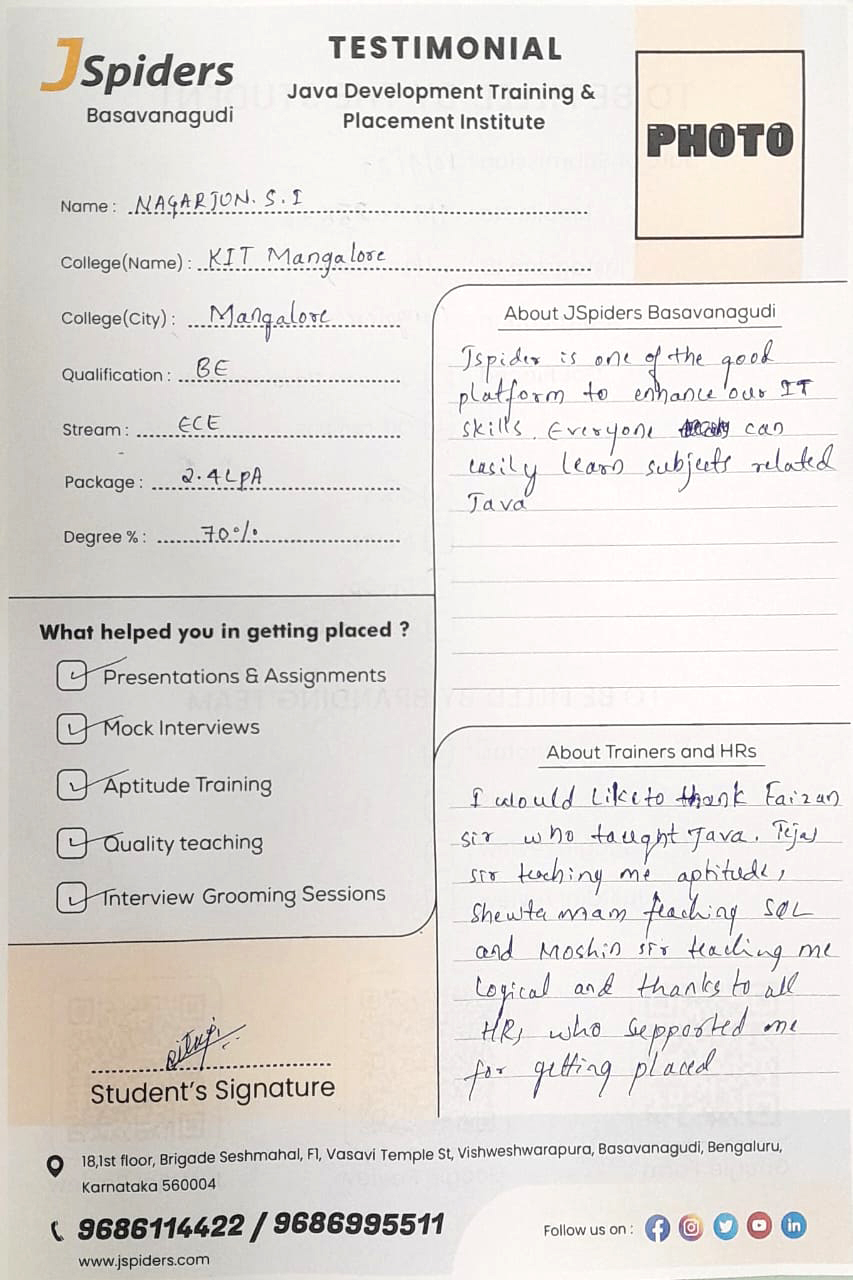 JSpiders
Basavanagudi
TESTIMONIAL
Java Development Training &
Placement Institute
PHOTO
Name : NAGARJUN. S. I
College(Name) : KIT Mangalore
College(City) : Mangalore
Qualification : BE
Stream : ECE
Package : 2.4LPA
Degree % : 70%
What helped you in getting placed ?
Presentations & Assignments
Mock Interviews
Aptitude Training
Quality teaching
Interview Grooming Sessions
Student's Signature
About JSpiders Basavanagudi
Jspider is one of the good
platform to enhance our IT
skills. Everyone can
easily learn subjects related
Java
About Trainers and HRs
I would like to thank Faizan
sir who taught Java. Tejas
sir teaching me aptitude,
Shewta mam teaching SQL
and Moshin sir teaching me
Logical and thanks to all
HRs who supported me
for getting placed
18,1st floor, Brigade Seshmahal, F1, Vasavi Temple St, Vishweshwarapura, Basavanagudi, Bengaluru,
Karnataka 560004
9686114422 / 9686995511
www.jspiders.com
Follow us on :